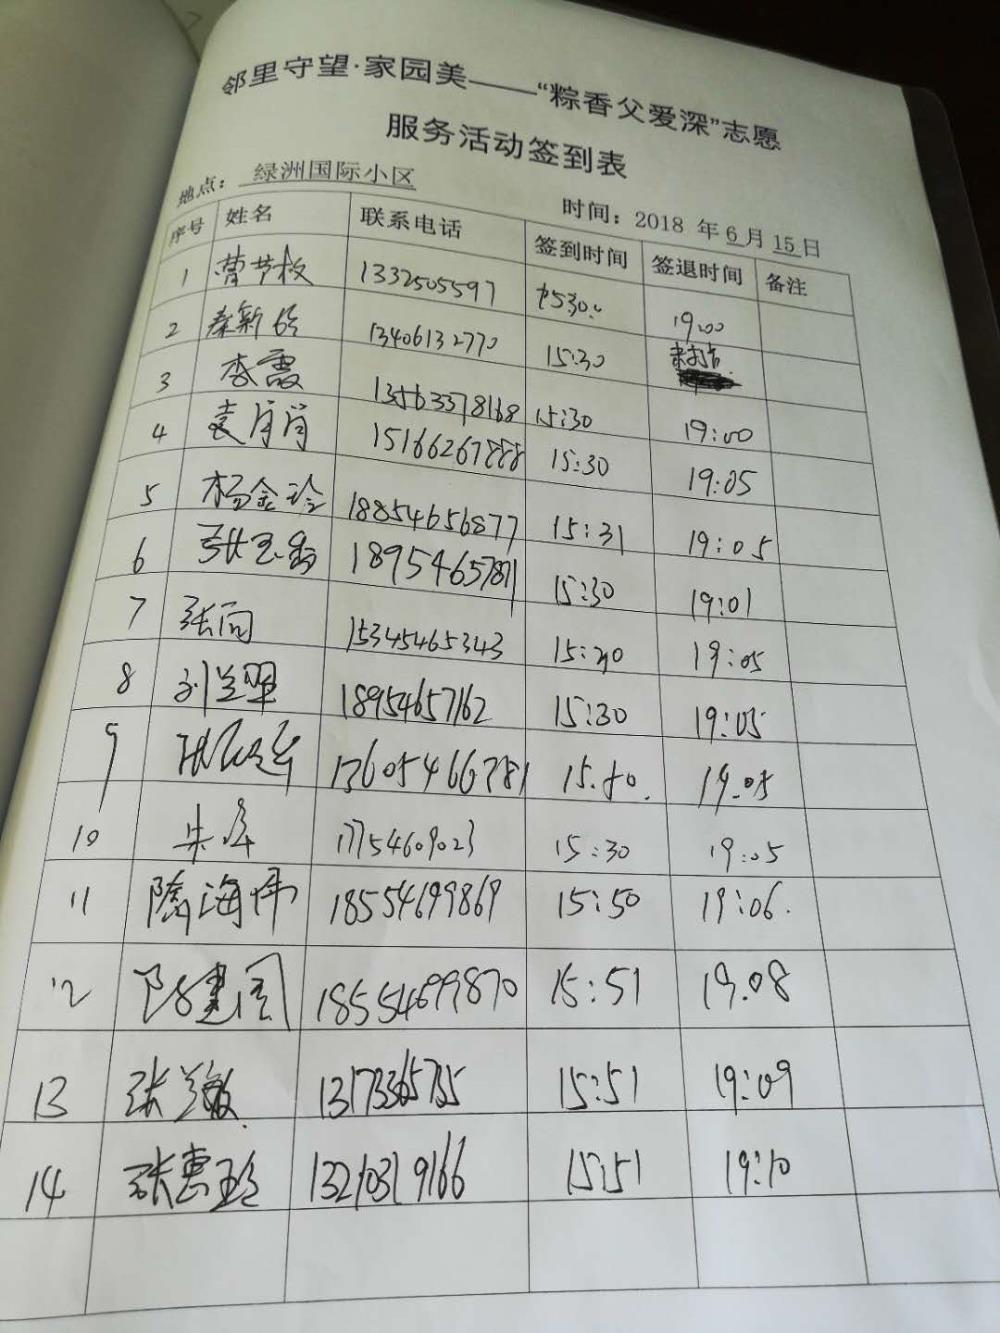 邻里守望·家园美——“粽香父爱深”志愿
服务活动签到表
地点： 绿洲国际小区
时间：2018 年 6 月 15 日
序号 姓名 联系电话 签到时间 签退时间 备注
1 1332505597 19:00
2 秦新 13406132770 15:30
3 李霞 13563378168 15:30 19:00
4 袁肖肖 15166267888 15:30 19:05
5 杨金玲 18854656877 15:31 19:05
6 张玉 1895465 15:30 19:01
7 张 15345465343 19:05
8 刘 18954657162 15:30 19:05
9 13605466781 19.05
10 朱 17754609023 15:30 19:05
11 隋海伟 18554699869 15:50 19:06.
12 建国 18554699870 15:51 19.08
13 张兰敏 13173365735 15:51 19:09
14 张惠玲 9166 15:51 19:10